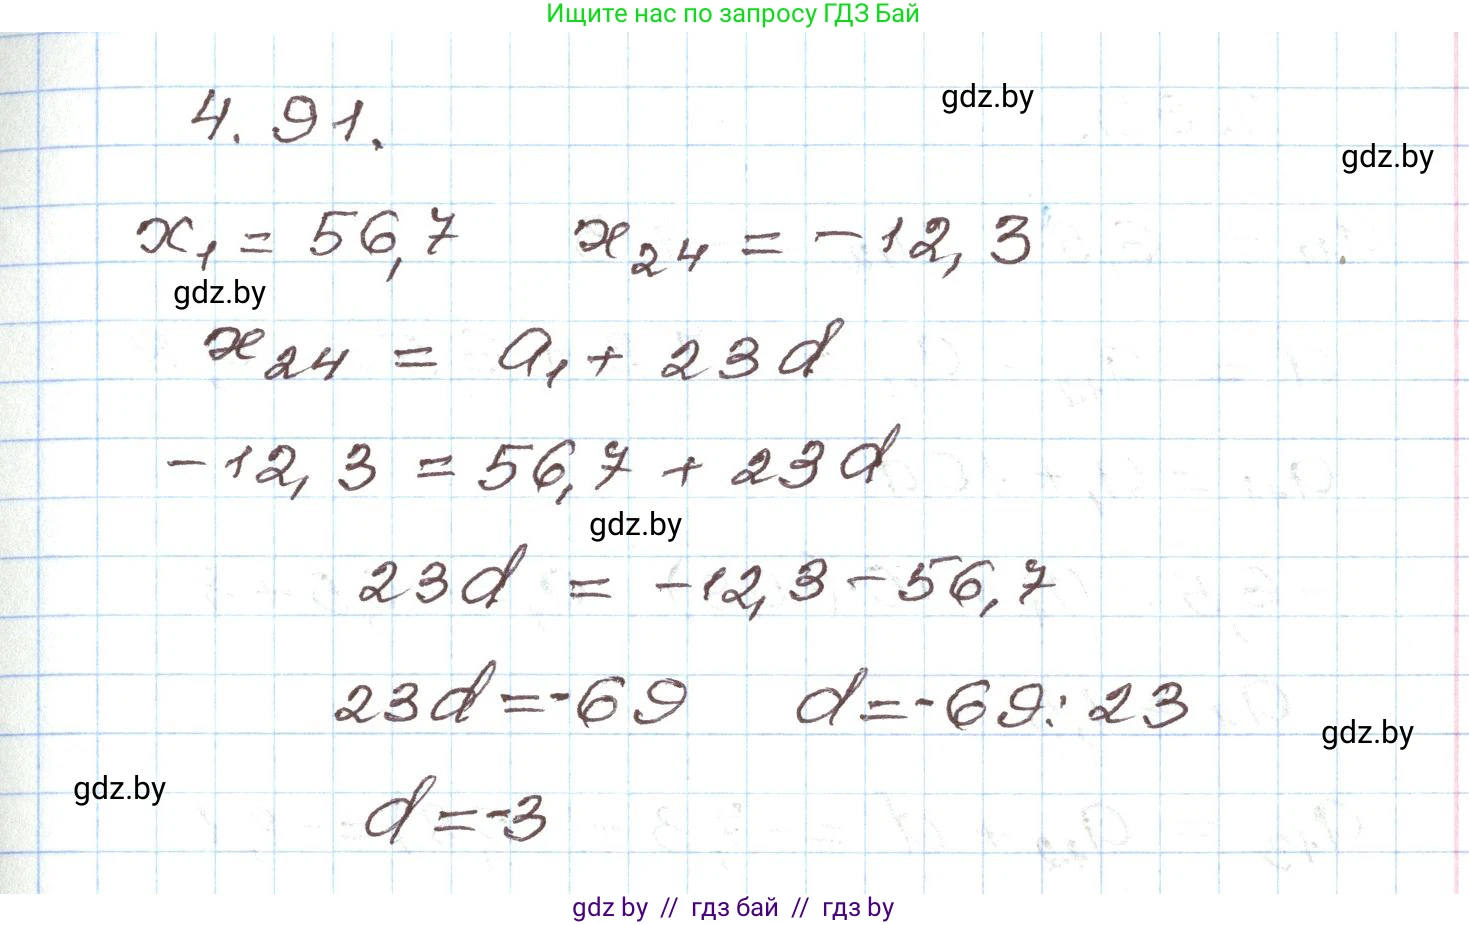 Ищите нас по запросу ГДЗ Бай
4.91.
gdz.by
gdz.by
x₁ = 56,7 x₂₄ = -12,3
gdz.by
x₂₄ = a₁ + 23d
-12,3 = 56,7 + 23d
gdz.by
23d = -12,3 - 56,7
23d = -69 d = -69 : 23
gdz.by
gdz.by
d = -3
gdz by // гдз бай // гдз by